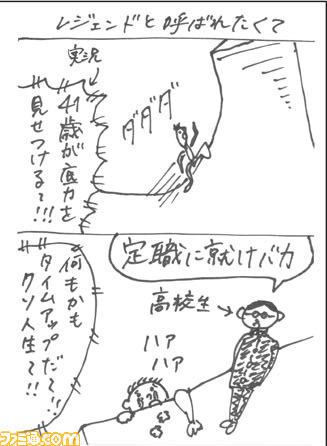 レジェンドと呼ばれたくて
実況
41歳が底力を
見せつけるて!!!
ダダダ
定職に就けバカ
高校生
ハァ
ハァ
何もかも
タイムアップだて!!
クソ人生て!!
ファミ通.com